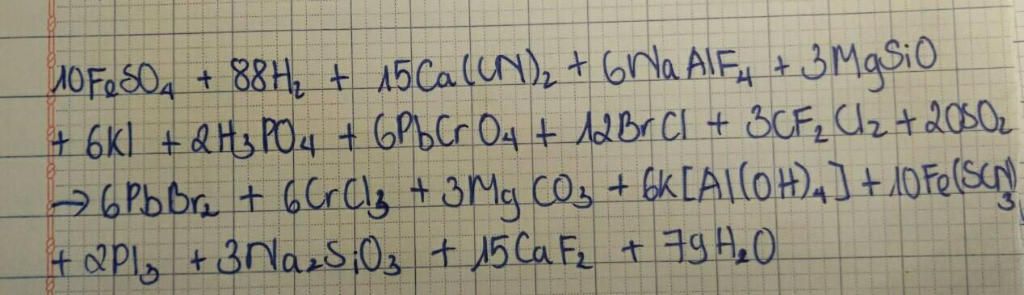 10FeSO₄ + 88H₂ + 15Ca(CN)₂ + 6NaAlF₄ + 3MgSiO
+ 6KI + 2H₃PO₄ + 6PbCrO₄ + 12BrCl + 3CF₂Cl₂ + 20SO₂
→ 6PbBr₂ + 6CrCl₃ + 3MgCO₃ + 6K[Al(OH)₄] + 10Fe(SCN)₃
+ 2PI₃ + 3Na₂SiO₃ + 15CaF₂ + 79H₂O